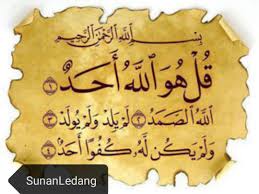 بِسْمِ اللَّهِ الرَّحْمَٰنِ الرَّحِيمِ
قُلْ هُوَ اللَّهُ أَحَدٌ ١
اللَّهُ الصَّمَدُ ٢ لَمْ يَلِدْ وَلَمْ يُولَدْ ٣
وَلَمْ يَكُنْ لَهُ كُفُوًا أَحَدٌ ٤
SunanLedang